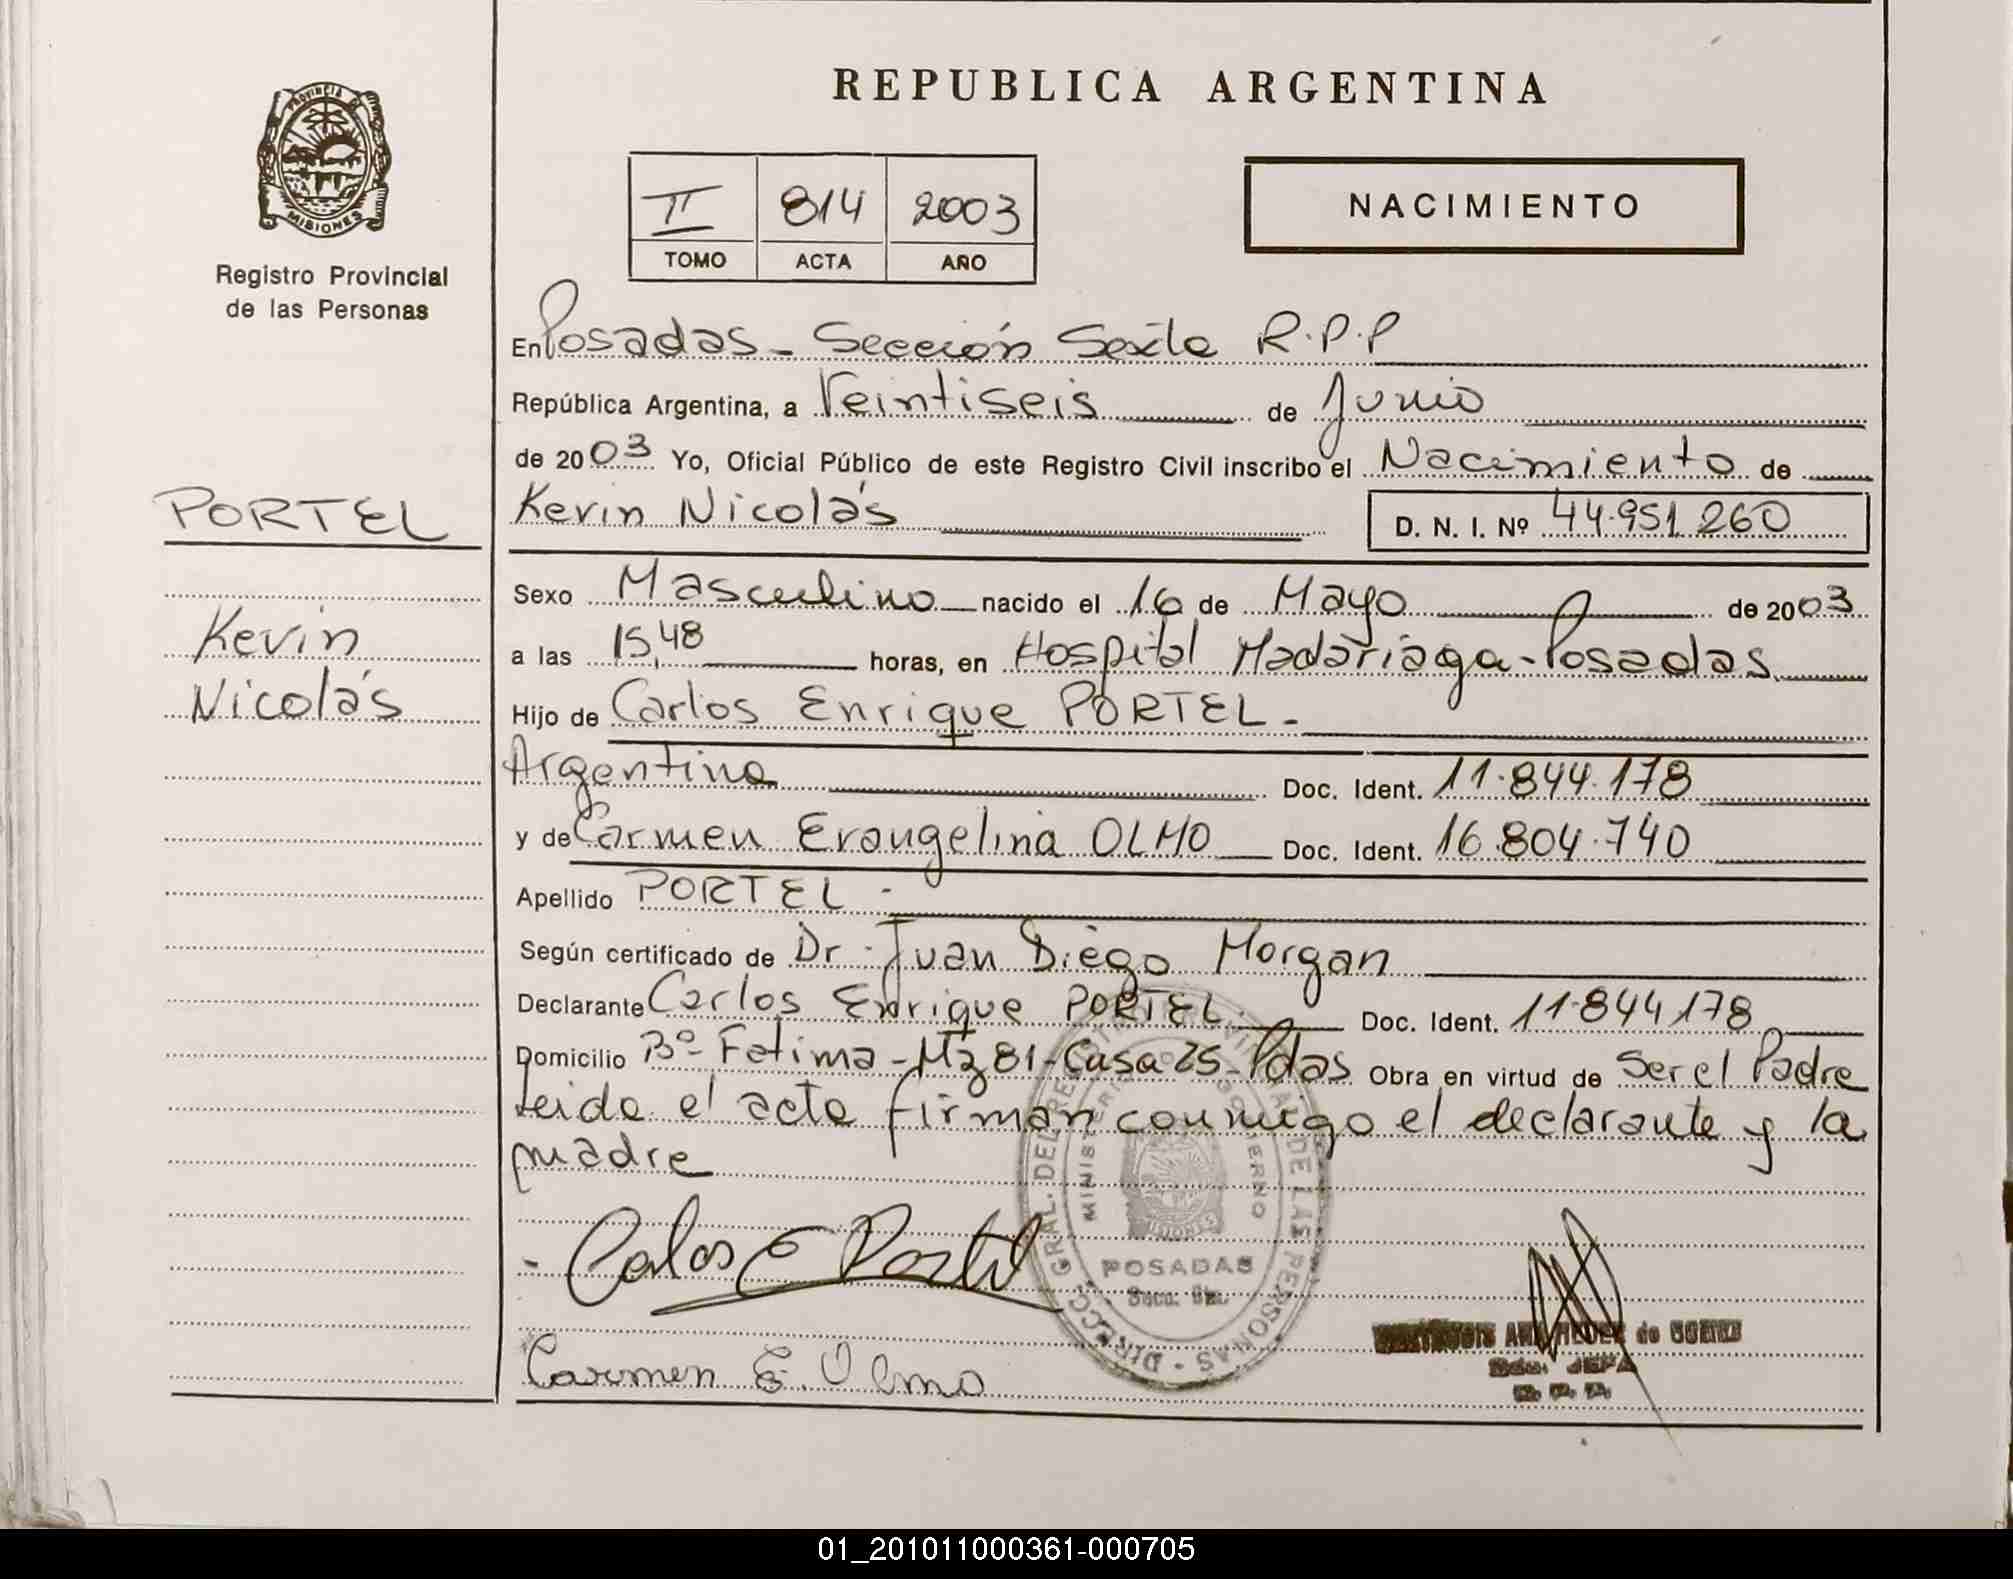 REPUBLICA ARGENTINA
PROVINCIA DE
MISIONES
Registro Provincial
de las Personas
II 814 2003
TOMO ACTA AÑO
NACIMIENTO
En Posadas - Sección Sexta R.P.P
República Argentina, a Veintiseis de Junio
de 2003 Yo, Oficial Público de este Registro Civil inscribo el Nacimiento de
PORTEL
Kevin Nicolás
D. N. I. Nº 44.951.260
Sexo Masculino nacido el 16 de Mayo de 2003
Kevin
a las 15,48 horas, en Hospital Madariaga - Posadas
Nicolás
Hijo de Carlos Enrique PORTEL -
Argentina Doc. Ident. 11.844.178
y de Carmen Evangelina OLMO Doc. Ident. 16.804.740
Apellido PORTEL -
Según certificado de Dr. Juan Diego Morgan
Declarante Carlos Enrique PORTEL. Doc. Ident. 11.844.178
Domicilio Bº Fatima - Mz 81 - Casa 25 - Pdas Obra en virtud de Ser el Padre
Leida el acta firman conmigo el declarante y la
madre
DIRECC. GRAL. DEL REGISTRO PROVINCIAL DE LAS PERSONAS
MISIONES
POSADAS
Secc.
Carlos E Portel
Carmen E. Olmo
de
JEFA
01_201011000361-000705